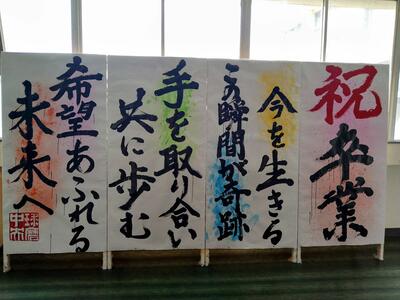 祝
卒業
今を生きる
この瞬間が奇跡
手を取り合い
共に歩む
希望あふれる
未来へ